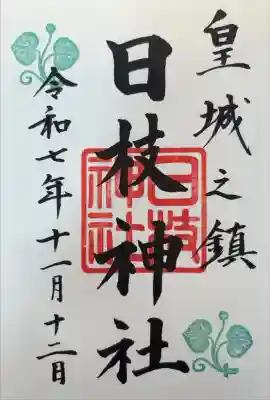 皇城之鎮
日枝神社
日枝神社
令和七年十一月十二日